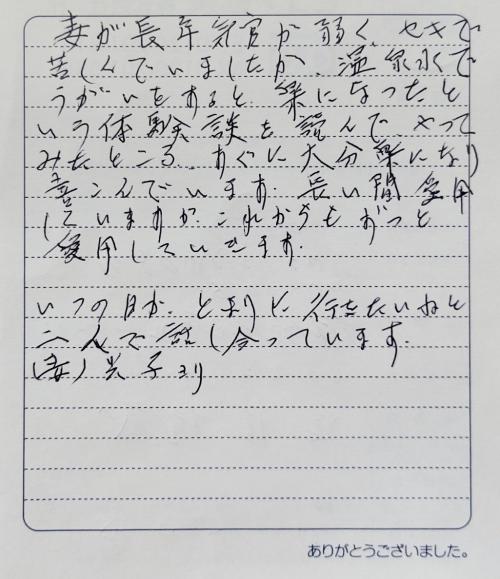 妻が長年気官が弱く、セキで
苦しんでいましたが、温泉水で
うがいをすると楽になったと
いう体験談を読んでやって
みたところ、すぐに大分楽になり
喜こんでいます。長い間愛用
していますが、これからもずっと
愛用していきます。
いつの日か、とまりに行きたいねと
二人で話し合っています。
(妻)光子より
ありがとうございました。